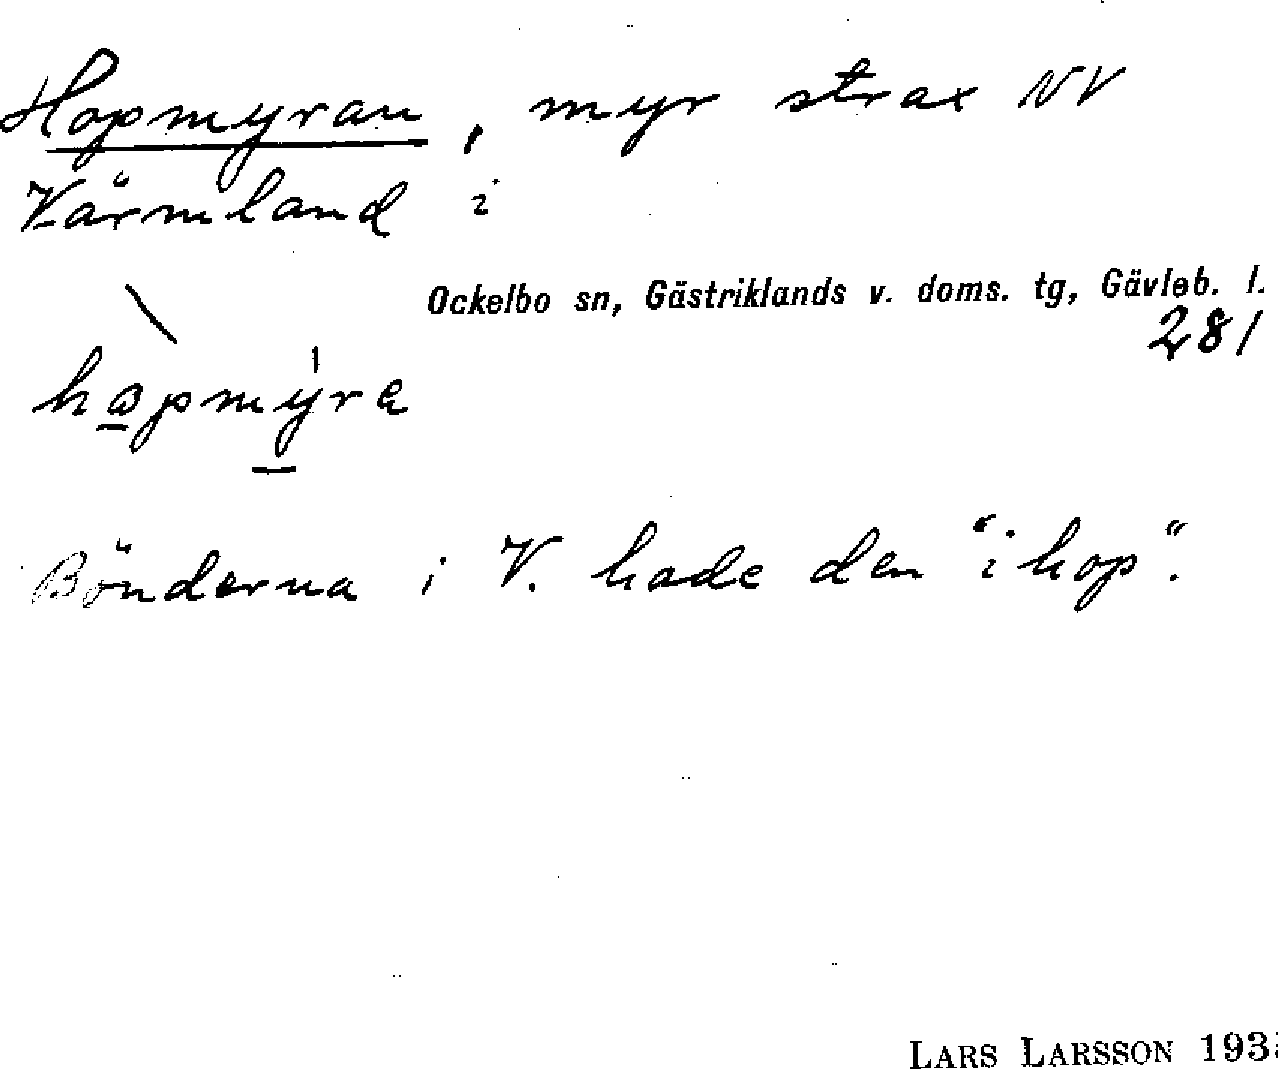 Hopmyran, myr strax NV
Värmland i
Ockelbo sn, Gästriklands v. doms. tg, Gävleb. l.
281
hopmyra
Bönderna i V. hade den "ihop".
LARS LARSSON 193